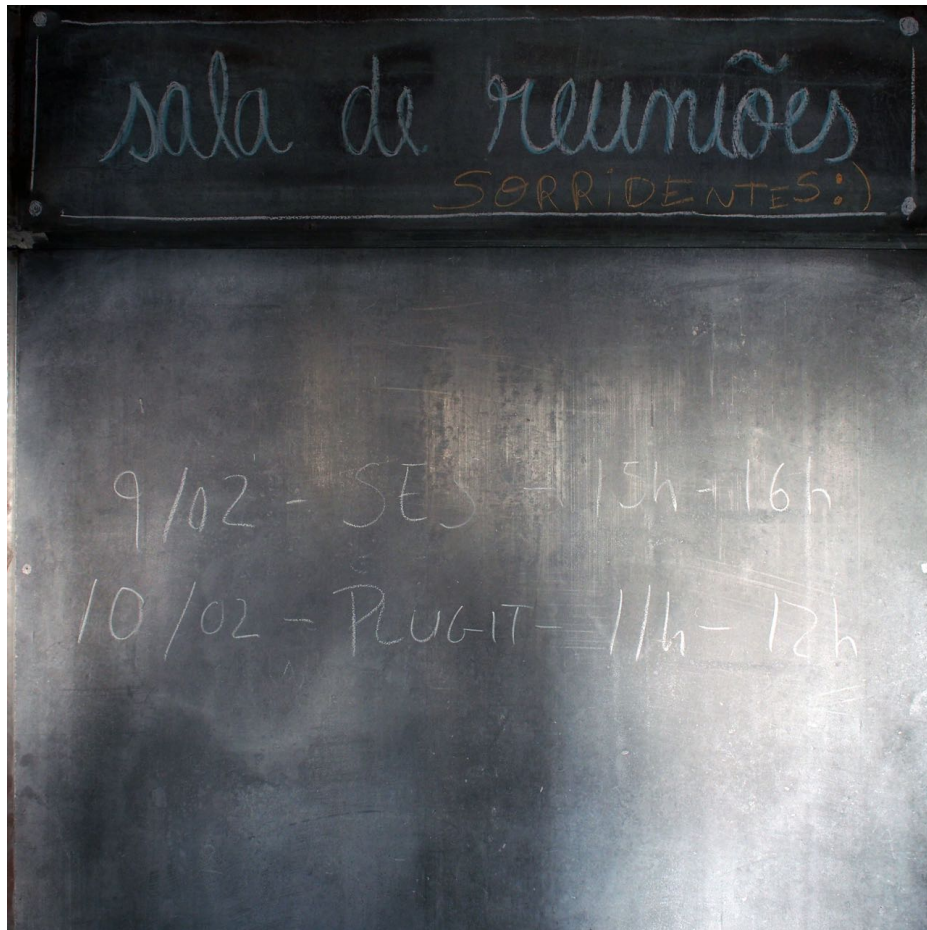 sala de reuniões
SORRIDENTES:)
9/02 - SES - 15h - 16h
10/02 - PLUGIT - 11h - 12h